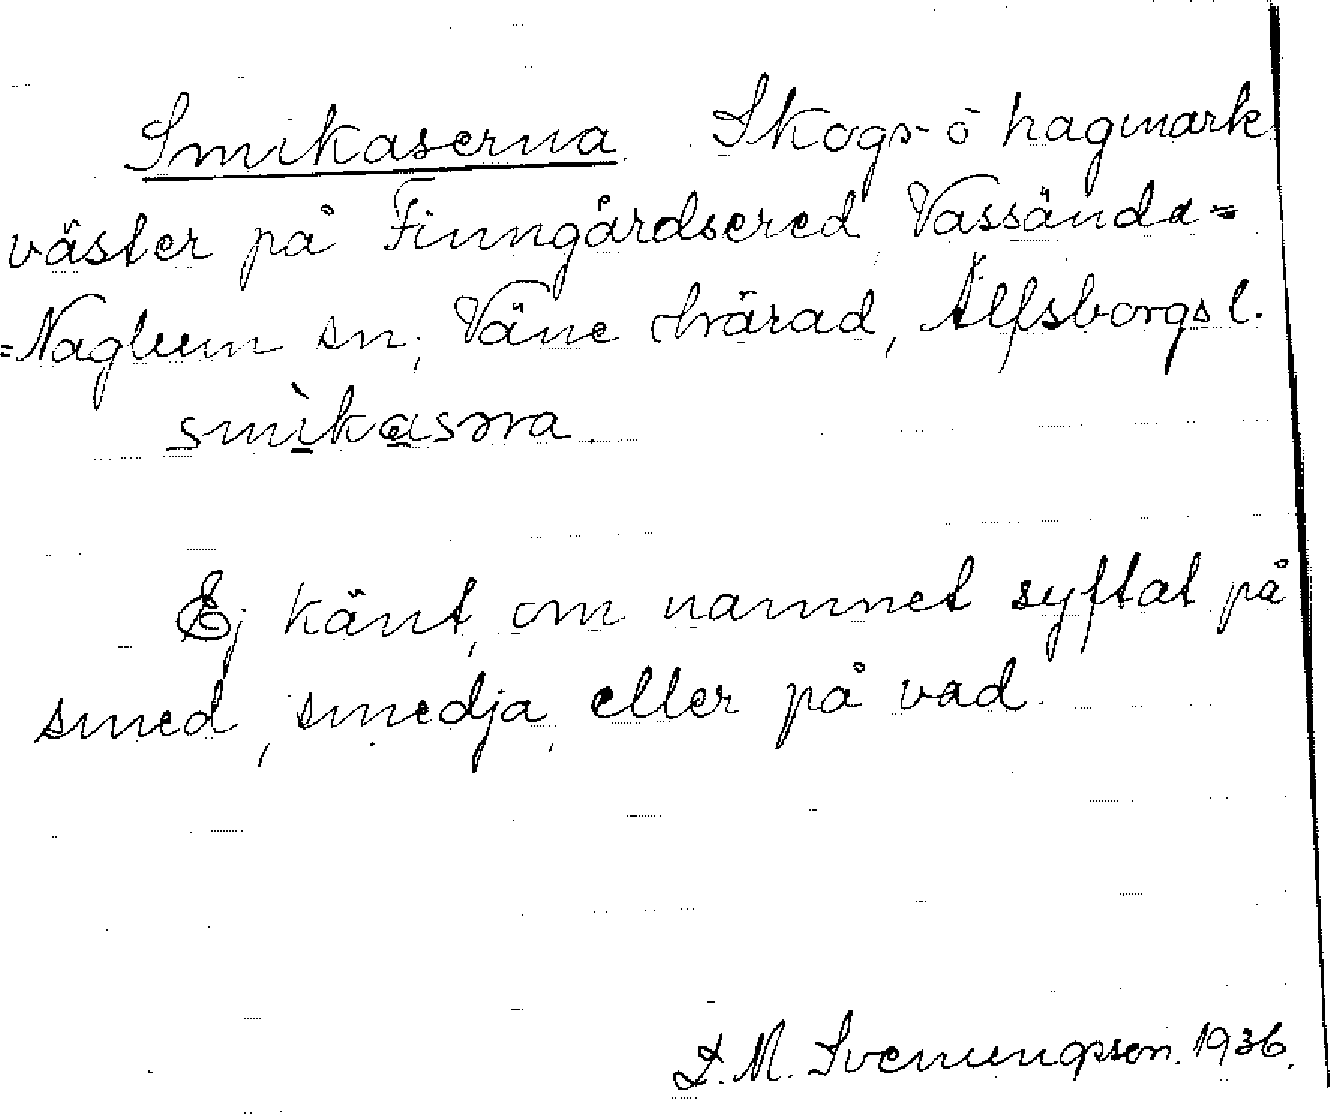 Smikaserna. Skogs- o hagmark
väster på Finngårdsered, Vassända=
=Naglum sn; Väne härad, Älfsborgs l.
smìkasɔra.
Ej känt, om namnet syftat på
smed, smedja, eller på vad.
L. M. Svenungsson. 1936.